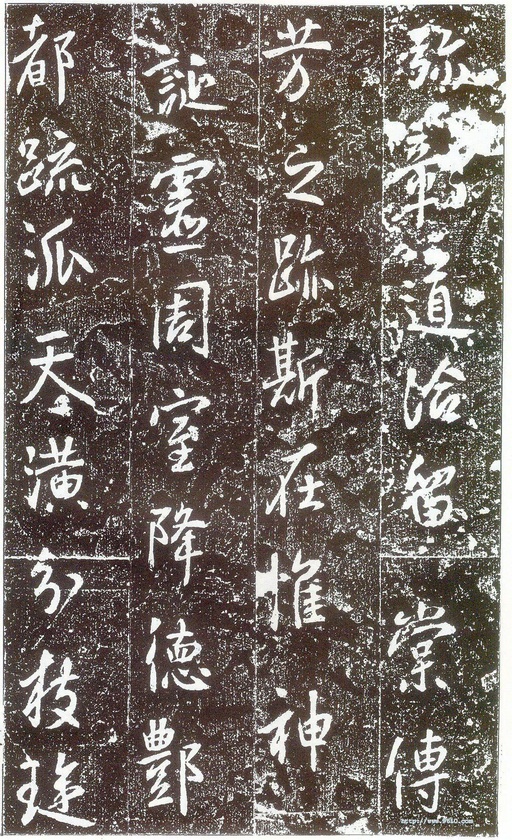 弥彰道洽留棠傳
芳之跡斯在惟神
誕霊周室降德酆
都疏派天潢分枝璇
http://www.9610.com